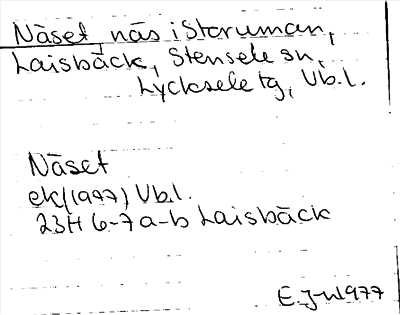 Näset, näs i Storuman,
Laisbäck, Stensele sn,
Lycksele tg, Vb.l.
Näset
ek/(1977) Vb.l.
23H 6-7 a-b Laisbäck
1977